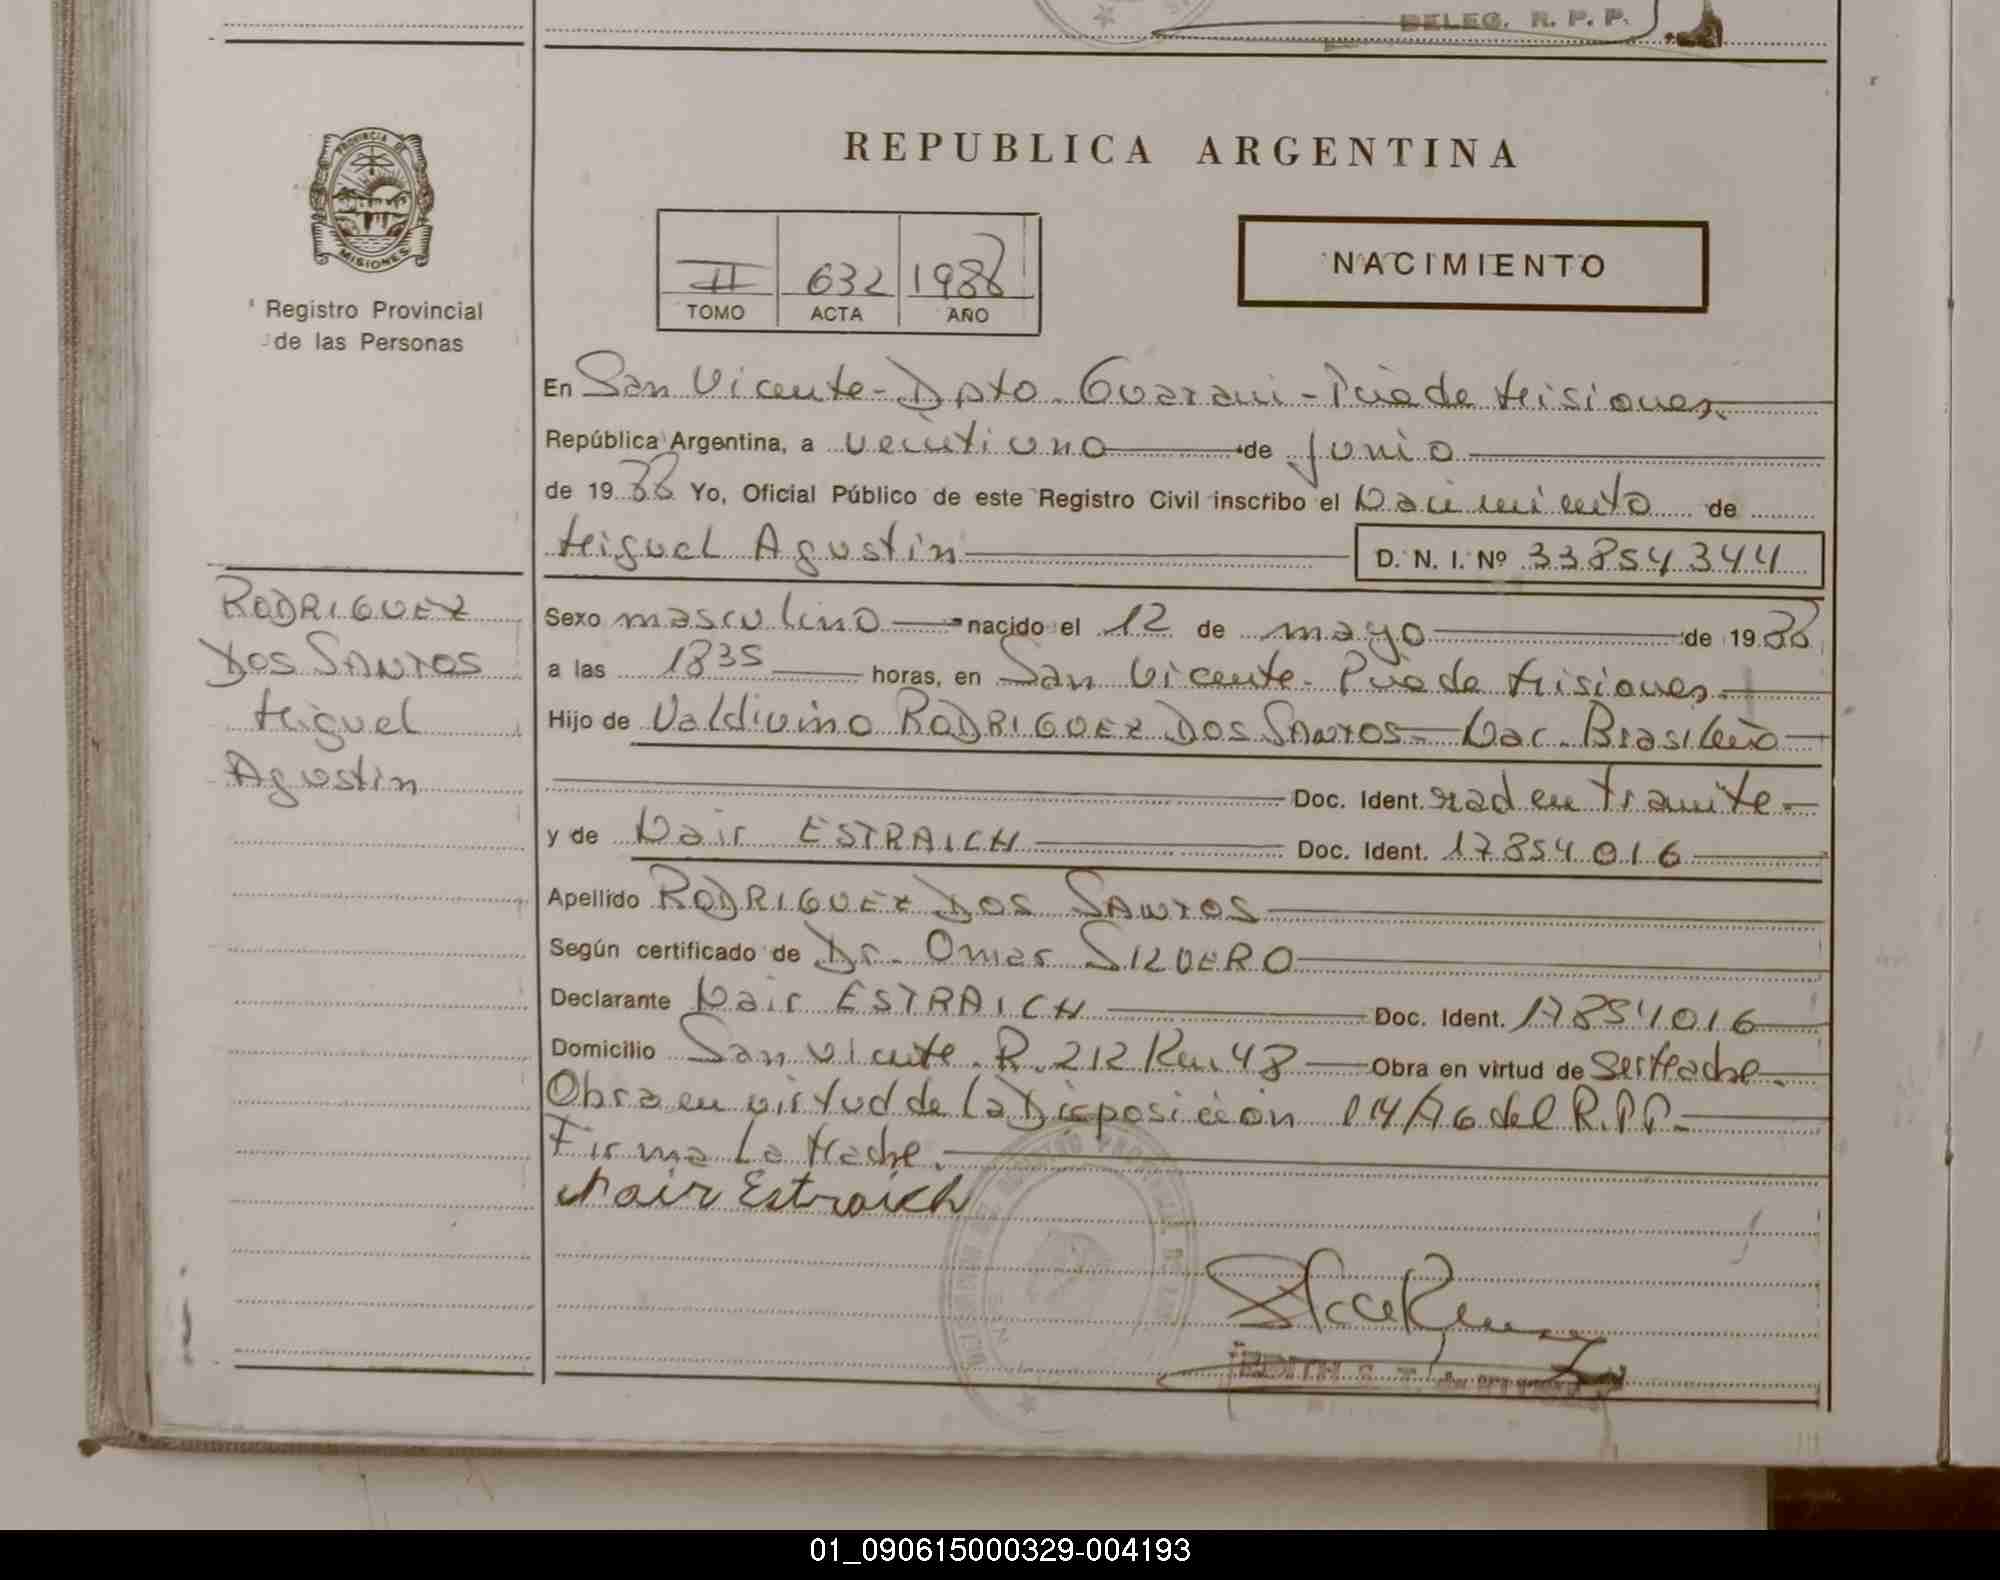 DELEG. R. P. P.
PROVINCIA DE
MISIONES
Registro Provincial
de las Personas
REPUBLICA ARGENTINA
II 632 1988
TOMO ACTA AÑO
NACIMIENTO
En San Vicente - Dpto. Guarani - Pcia de Misiones.
República Argentina, a veintiuno de junio
de 1988 Yo, Oficial Público de este Registro Civil inscribo el Nacimiento de
Miguel Agustin D. N. I. Nº 33854344
RODRIGUEZ
DOS SANTOS
Miguel
Agustin
Sexo masculino nacido el 12 de mayo de 1988
a las 1835 horas, en San Vicente - Pcia de Misiones.
Hijo de Valdivino RODRIGUEZ DOS SANTOS - Nac. Brasileño
Doc. Ident. rad en tramite.
y de Nair ESTRAICH Doc. Ident. 17854016
Apellido RODRIGUEZ DOS SANTOS
Según certificado de Dr. Omar SILVERO
Declarante Nair ESTRAICH Doc. Ident. 17854016
Domicilio San Vicente. R. 212 Km 48 Obra en virtud de ser Madre.
Obra en virtud de la Disposicion 114/76 del R.P.P.
Firma La Madre.
Nair Estraich
EDITH S. T. de
01_090615000329-004193